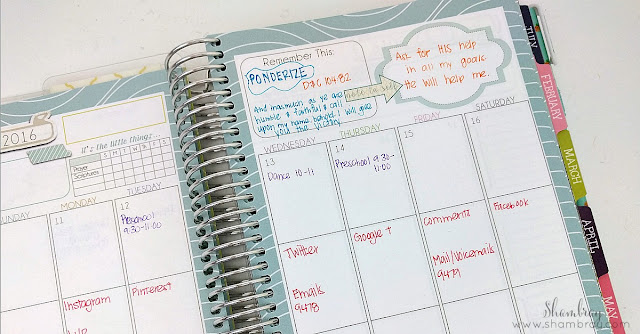 2016
It's the little things...
S M T W T F S
Prayer
Scriptures
UNDAY
MONDAY
TUESDAY
11
12
Preschool
9:30-11:00
Instagram
Pinterest
Remember This:
PONDERIZE
D&C 104:82
And inasmuch as ye are
humble & faithful & call
upon my name behold I will give
you the victory
note to self
Ask for HIS help
in all my goals.
He will help me.
WEDNESDAY
THURSDAY
FRIDAY
SATURDAY
13
14
15
16
Dance 10-11
Preschool 9:30-
11:00
Twitter
Google +
Comments
Facebook
Emails
9478
Mail/Voicemails
9479
FEBRUARY
MARCH
APRIL
MAY
Shambray
www.shambray.com